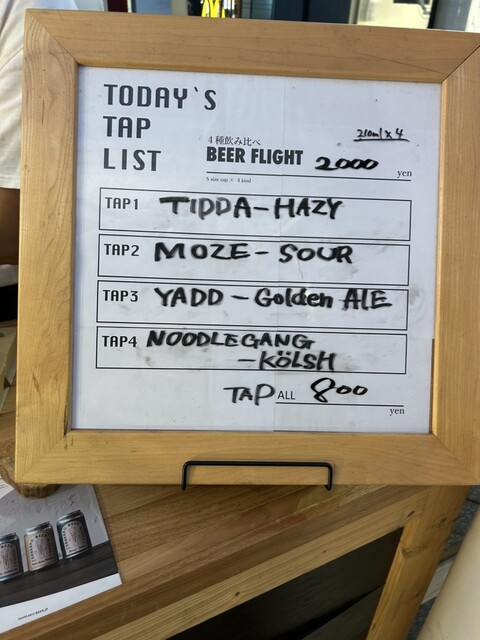 TODAY'S
TAP
LIST
210ml x 4
4種飲み比べ
BEER FLIGHT 2000 yen
S size cup × 4 kind
TAP1 TIDDA-HAZY
TAP2 MOZE-SOUR
TAP3 YADD-Golden ALE
TAP4 NOODLEGANG
-KÖLSH
TAP ALL 800 yen